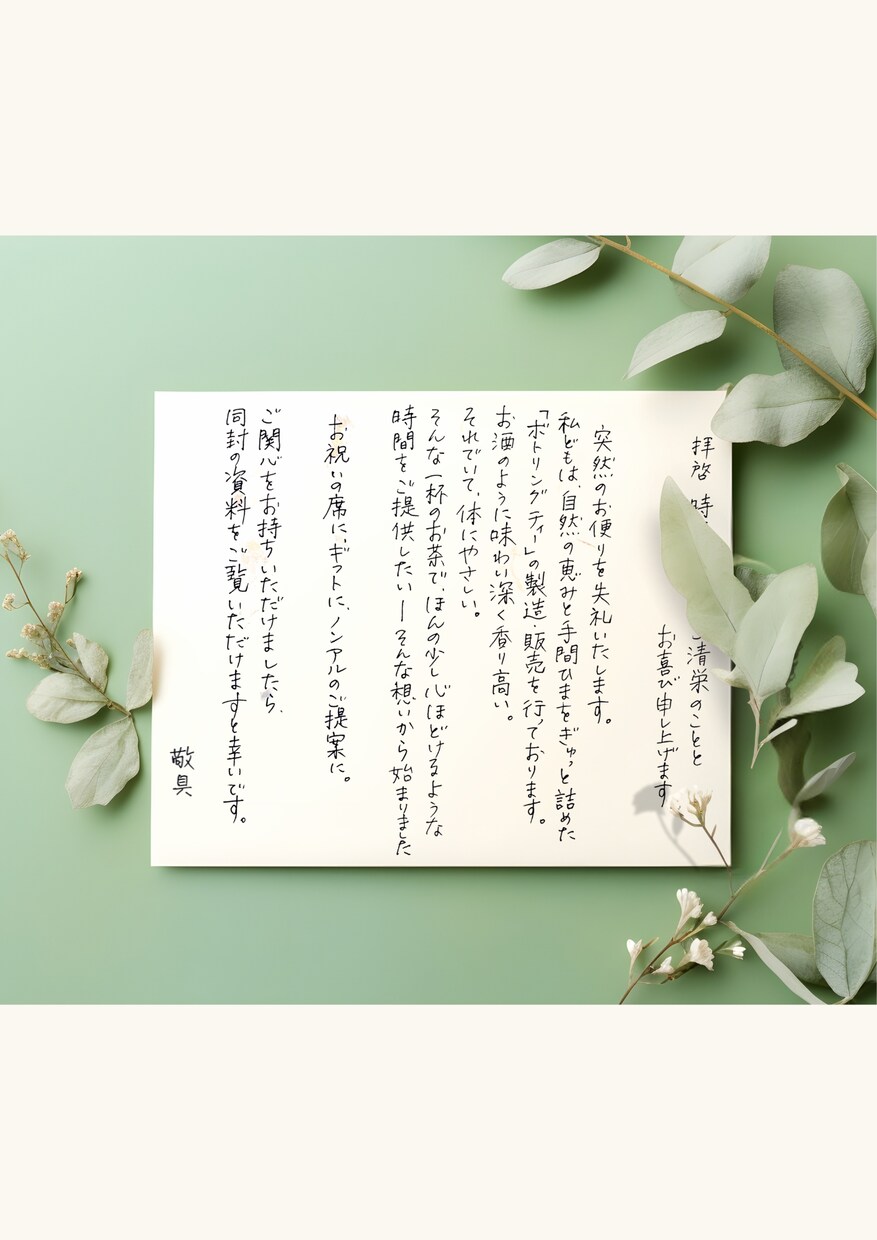 拝啓 時
ご清栄のことと
お喜び申し上げます
突然のお便りを失礼いたします。
私どもは、自然の恵みと手間ひまをぎゅっと詰めた
「ボトリングティー」の製造・販売を行っております。
お酒のように味わい深く香り高い。
それでいて、体にやさしい。
そんな一杯のお茶で、ほんの少し心ほどけるような
時間をご提供したい—そんな想いから始まりました
お祝いの席に、ギフトに、ノンアルのご提案に。
ご関心をお持ちいただけましたら、
同封の資料をご覧いただけますと幸いです。
敬具